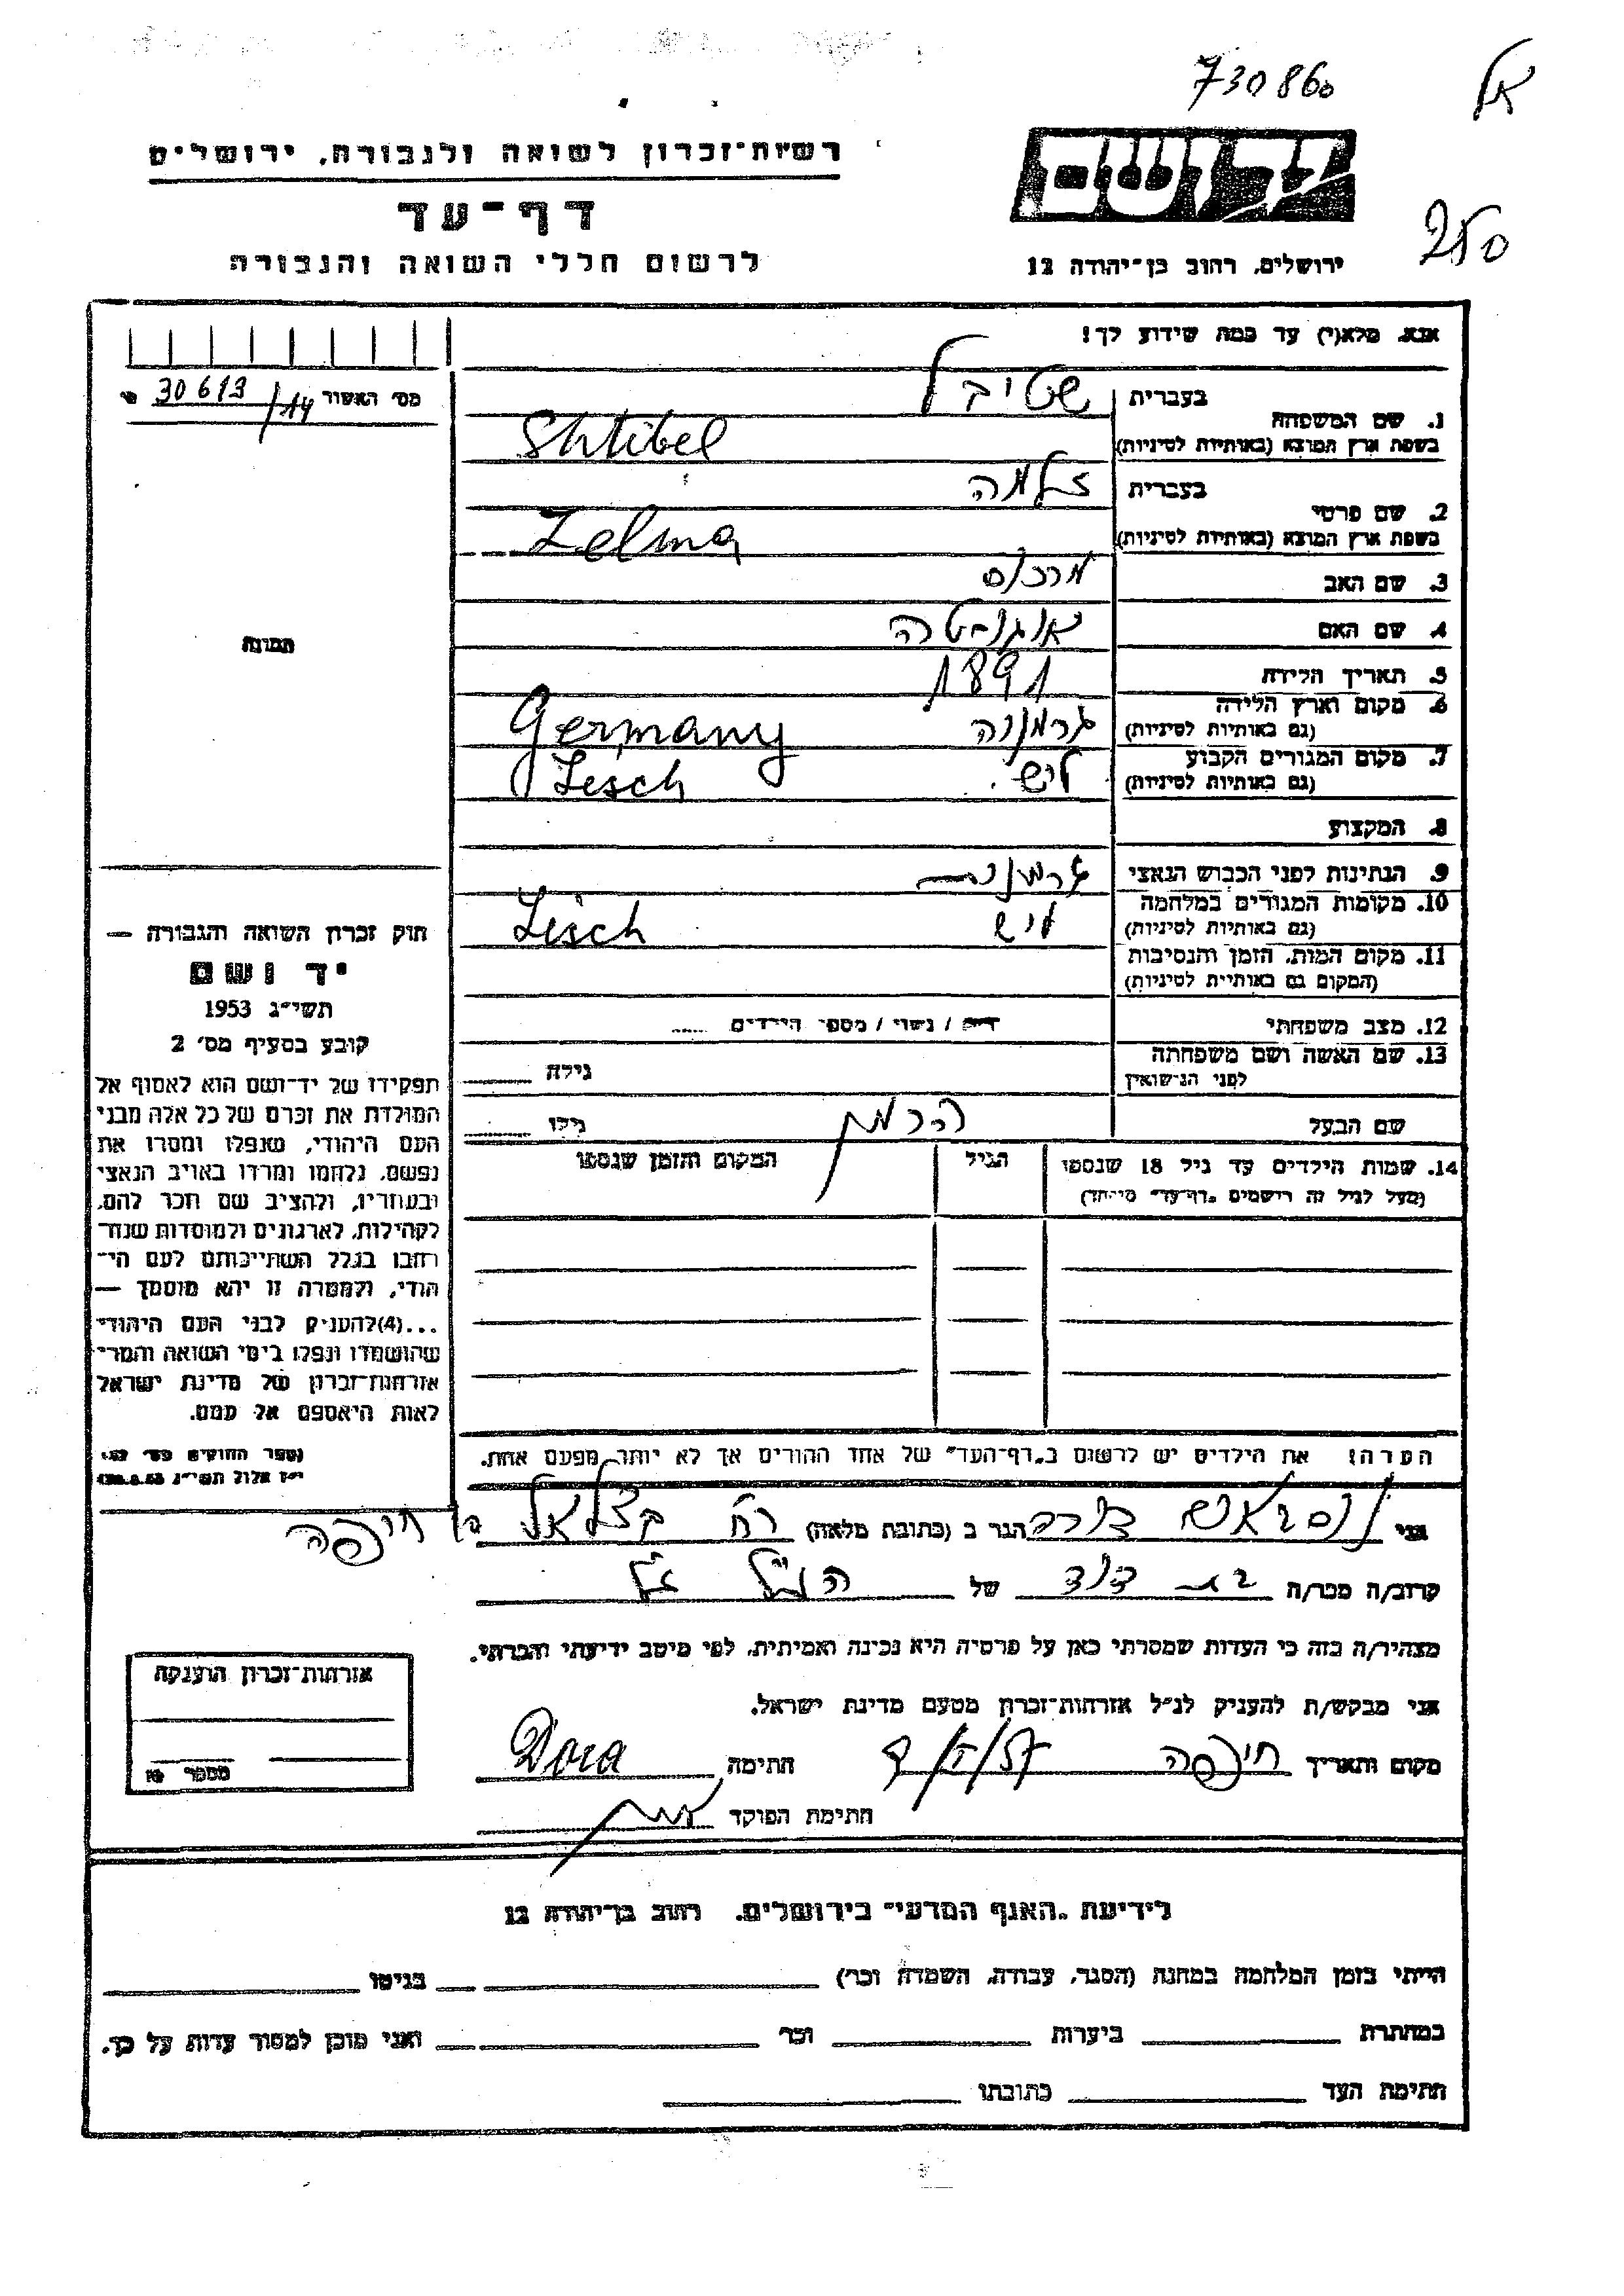 730860
אל
רשות־זכרון לשואה ולגבורה, ירושלים
יד ושם
דף־עד
לרשום חללי השואה והגבורה
ירושלים, רחוב בן־יהודה 12
אנא, מלא(י) עד כמה שידוע לך!
מס׳ האשור 30613/14
1. שם המשפחה בעברית שטיבל
בשפת ארץ המוצא (באותיות לטיניות) Shtibel
2. שם פרטי בעברית זלמה
בשפת ארץ המוצא (באותיות לטיניות) Zelma
3. שם האב מרכוס
4. שם האם
תמונה
5. תאריך הלידה 1891
6. מקום וארץ הלידה גרמניה Germany
(גם באותיות לטיניות)
7. מקום המגורים הקבוע ליש Lesch
(גם באותיות לטיניות)
8. המקצוע
9. הנתינות לפני הכבוש הנאצי גרמנית
10. מקומות המגורים במלחמה ליש Lesch
(גם באותיות לטיניות)
11. מקום המות, הזמן והנסיבות
(המקום גם באותיות לטיניות)
12. מצב משפחתי רווק / נשוי / מספר הילדים
13. שם האשה ושם משפחתה גילה
לפני הנישואין
שם הבעל הרמן גילו
14. שמות הילדים עד גיל 18 שנספו הגיל המקום והזמן שנספו
(מעל לגיל זה רושמים „דף־עד״ מיוחד)
חוק זכרון השואה והגבורה —
יד ושם
תשי״ג 1953
קובע בסעיף מס׳ 2
תפקידו של יד־ושם הוא לאסוף אל
המולדת את זכרם של כל אלה מבני
העם היהודי, שנפלו ומסרו את
נפשם, נלחמו ומרדו באויב הנאצי
ובעוזריו, ולהציב שם וזכר להם,
לקהילות, לארגונים ולמוסדות שנח־
רבו בגלל השתייכותם לעם הי־
הודי, ולמטרה זו יהא מוסמך —
...(4)להעניק לבני העם היהודי
שהושמדו ונפלו בימי השואה והמרי
אזרחות־זכרון של מדינת ישראל
לאות היאספם אל עמם.
(ספר החוקים מס׳ 132,
י״ז אלול תשי״ג 28.8.53)
הערה: את הילדים יש לרשום ב„דף־העד״ של אחד ההורים אך לא יותר מפעם אחת.
אני דורה הגר ב (כתובת מלאה) רח בצלאל חיפה
קרוב/ה מכר/ה בת דוד של הנ״ל
מצהיר/ה בזה כי העדות שמסרתי כאן על פרטיה היא נכונה ואמיתית, לפי מיטב ידיעתי והכרתי.
אני מבקש/ת להעניק לנ״ל אזרחות־זכרון מטעם מדינת ישראל.
מקום ותאריך חיפה חתימה Dora
חתימת הפוקד
אזרחות־זכרון הוענקה
מספר
לידיעת „האגף המדעי״ בירושלים, רחוב בן־יהודה 12
הייתי בזמן המלחמה במחנה (הסגר, עבודה, השמדה וכו׳) בגיטו
במחתרת ביערות וכו׳ ואני מוכן למסור עדות על כך.
חתימת העד כתובתו